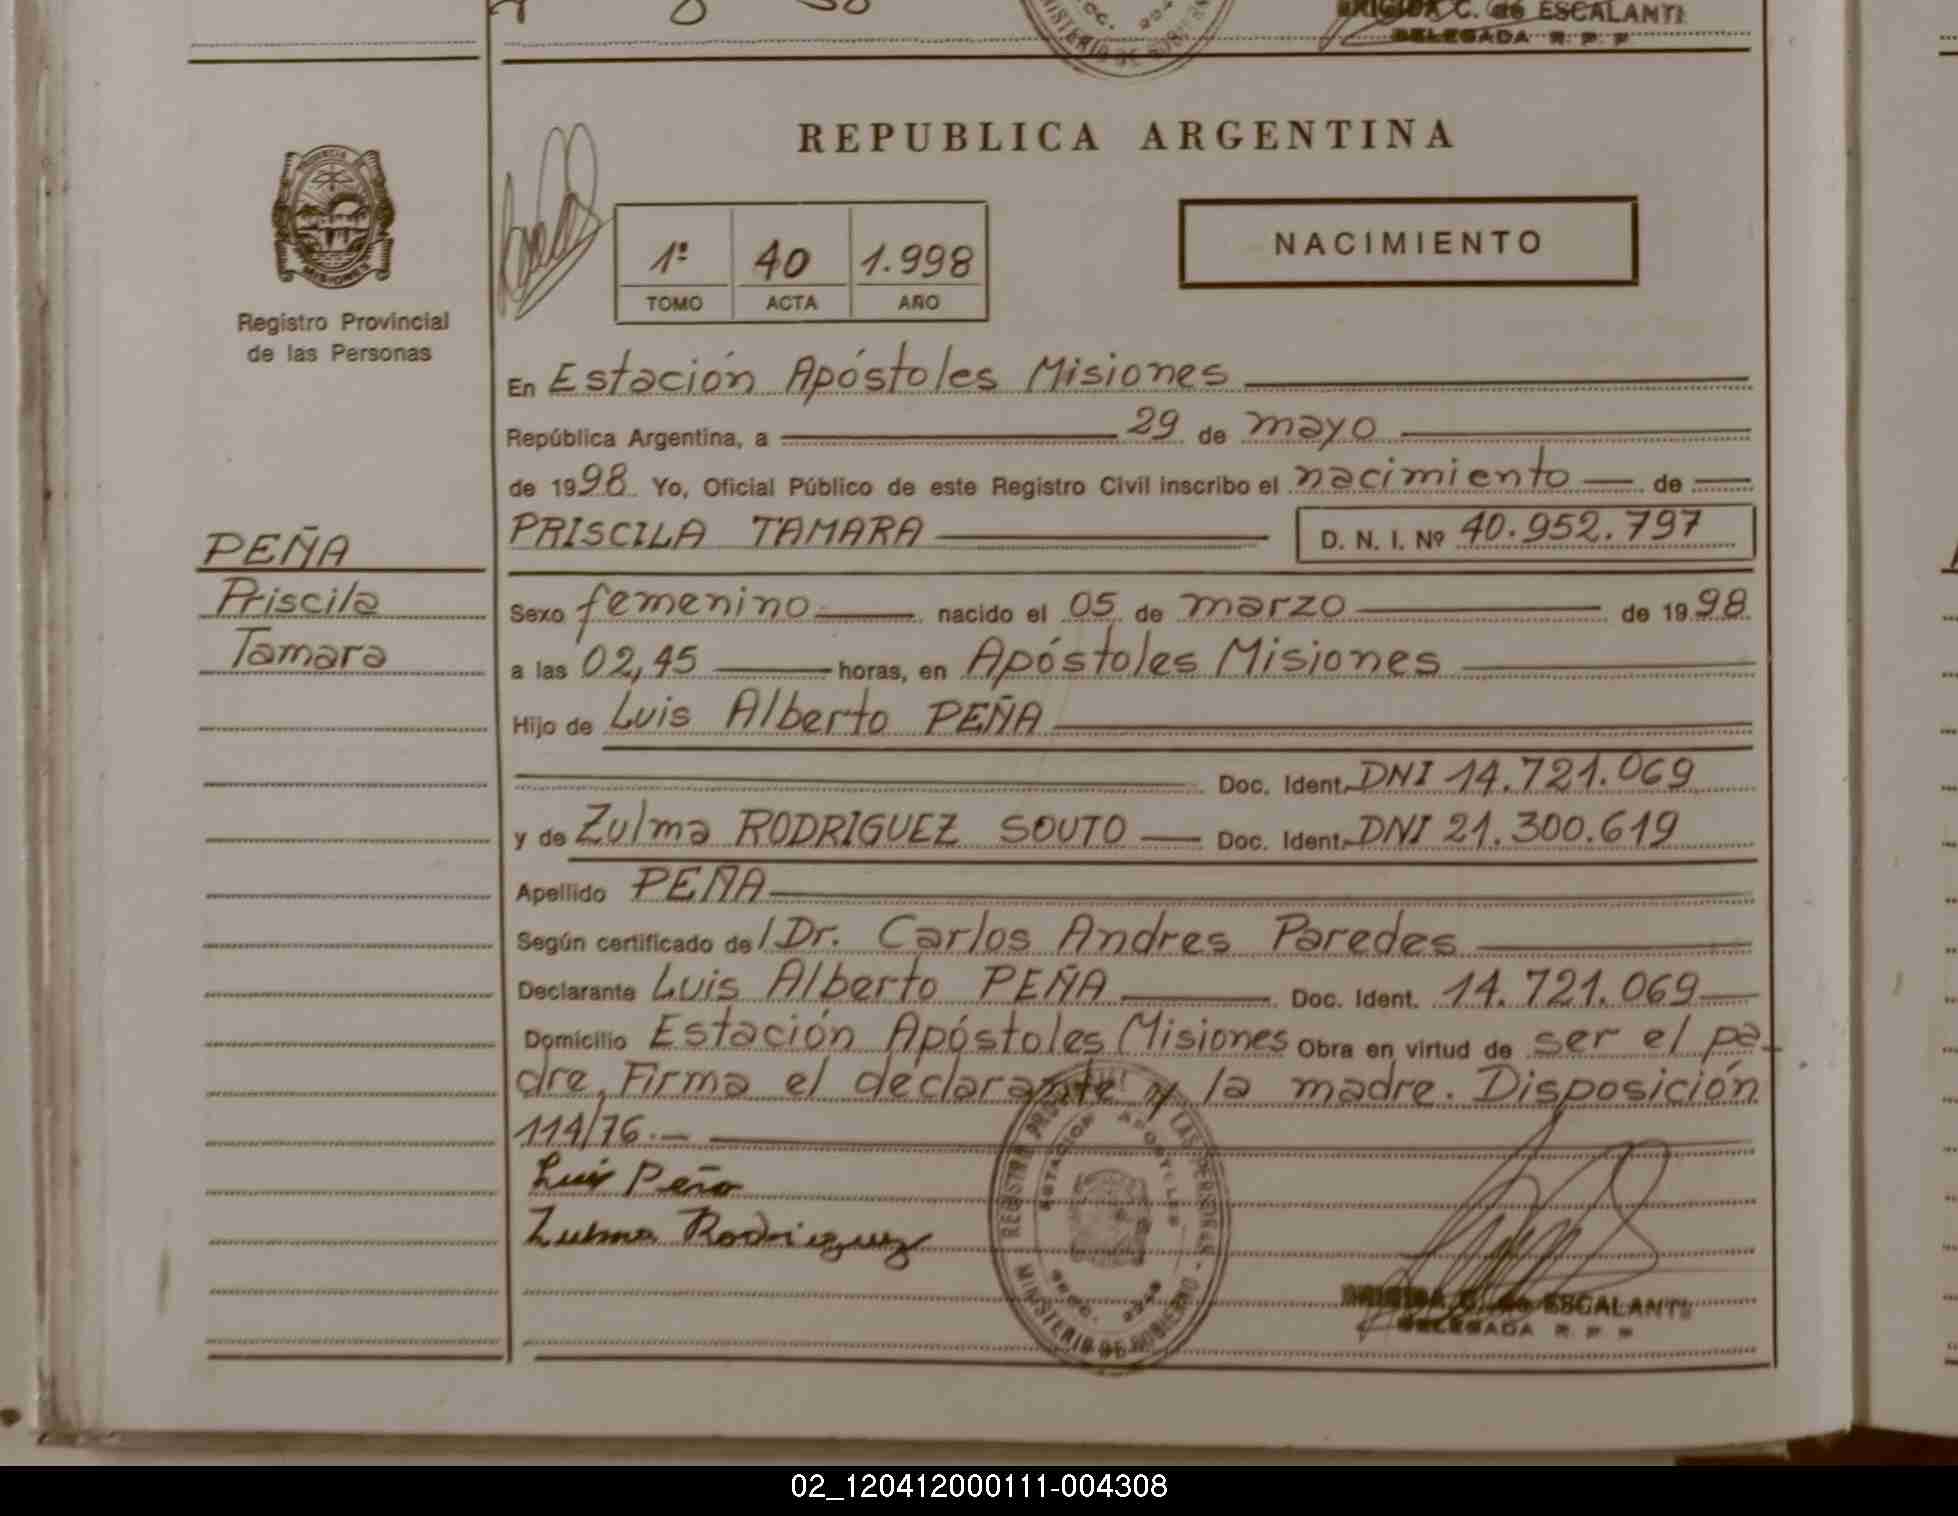 C. de ESCALANTE
DELEGADA R. P. P
REPUBLICA ARGENTINA
PROVINCIA
MISIONES
Registro Provincial
de las Personas
1º 40 1.998
TOMO ACTA AÑO
NACIMIENTO
En Estación Apóstoles Misiones
República Argentina, a 29 de mayo
de 1998. Yo, Oficial Público de este Registro Civil inscribo el nacimiento de
PRISCILA TAMARA D. N. I. Nº 40.952.797
PEÑA
Priscila
Tamara
Sexo femenino nacido el 05 de marzo de 1998
a las 02,45 horas, en Apóstoles Misiones
Hijo de Luis Alberto PEÑA
Doc. Ident. DNI 14.721.069
y de Zulma RODRIGUEZ SOUTO Doc. Ident. DNI 21.300.619
Apellido PEÑA
Según certificado de / Dr. Carlos Andres Paredes
Declarante Luis Alberto PEÑA Doc. Ident. 14.721.069
Domicilio Estación Apóstoles Misiones Obra en virtud de ser el pa-
dre, Firma el declarante y la madre. Disposición
114/76.-
Luis Peña
Zulma Rodriguez
REGISTRO LAS PERSONAS
ESTACION APOSTOLES
MINISTERIO DE GOBIERNO
C. de ESCALANTE
DELEGADA R. P. P
02_120412000111-004308